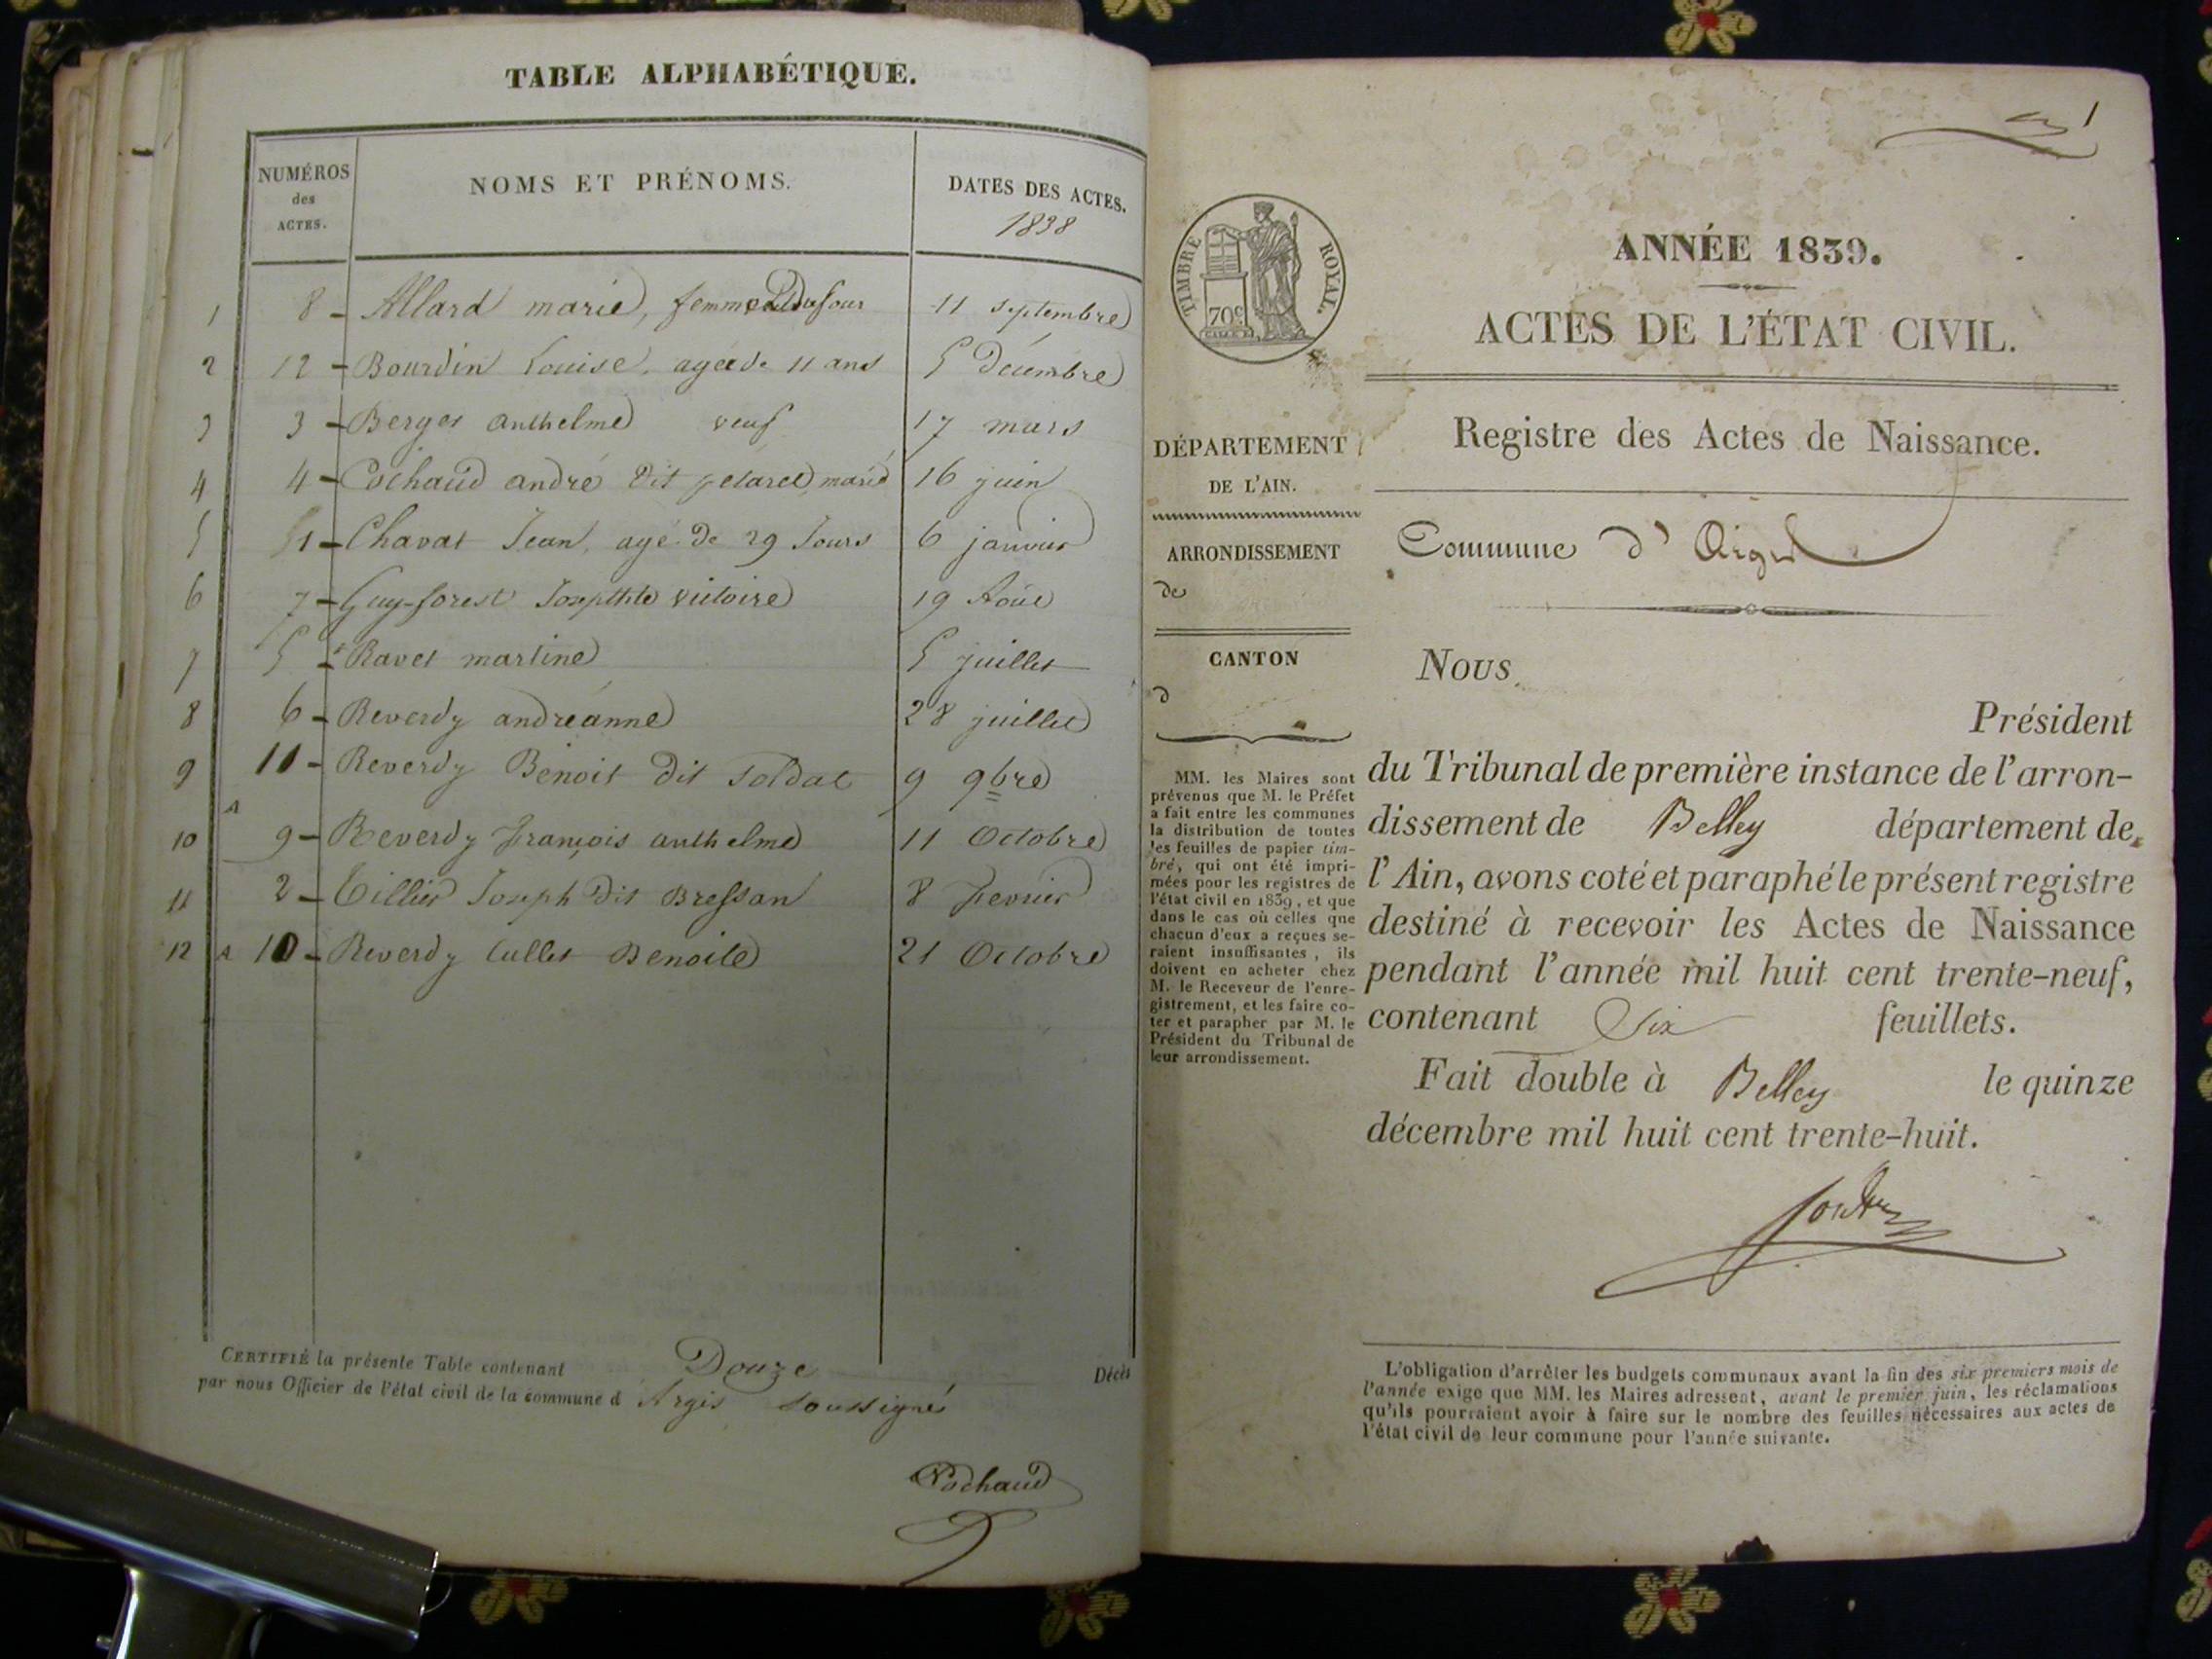 TABLE ALPHABÉTIQUE.
NUMÉROS des ACTES.
NOMS ET PRÉNOMS.
DATES DES ACTES.
1838
1 8 - Allard marie, femme Dufour 11 septembre
2 12 - Bourdin Louise, agée de 11 ans 5 décembre
3 3 - Berger anthelme veuf 17 mars
4 4 - Cochaud andré dit marié 16 juin
5 1 - Chavat Jean, agé de 29 Jours 6 janvier
6 7 - Guy-forest victoire 19 Aout
7 5 - Ravet martine 5 juillet
8 6 - Reverdy andréanne 28 juillet
9 11 - Reverdy Benoit dit soldat 9 9bre
10 9 - Reverdy François anthelme 11 Octobre
11 2 - Tillier Joseph dit Bressan 8 fevrier
12 A 10 - Reverdy Cullet Benoite 21 Octobre
CERTIFIÉ la présente Table contenant Douze Décès
par nous Officier de l'état civil de la commune d'Argis soussigné
Cochaud
1
TIMBRE ROYAL.
70 c
ANNÉE 1839.
ACTES DE L'ÉTAT CIVIL.
Registre des Actes de Naissance.
DÉPARTEMENT
DE L'AIN.
ARRONDISSEMENT
de
CANTON
d
Commune d'Argis
Nous
Président
du Tribunal de première instance de l'arron-
dissement de Belley département de
l'Ain, avons coté et paraphé le présent registre
destiné à recevoir les Actes de Naissance
pendant l'année mil huit cent trente-neuf,
contenant Six feuillets.
Fait double à Belley le quinze
décembre mil huit cent trente-huit.
MM. les Maires sont
prévenus que M. le Préfet
a fait entre les communes
la distribution de toutes
les feuilles de papier tim-
bré, qui ont été impri-
mées pour les registres de
l'état civil en 1839, et que
dans le cas où celles que
chacun d'eux a reçues se-
raient insuffisantes, ils
doivent en acheter chez
M. le Receveur de l'enre-
gistrement, et les faire co-
ter et parapher par M. le
Président du Tribunal de
leur arrondissement.
L'obligation d'arrêter les budgets communaux avant la fin des six premiers mois de
l'année exige que MM. les Maires adressent, avant le premier juin, les réclamations
qu'ils pourraient avoir à faire sur le nombre des feuilles nécessaires aux actes de
l'état civil de leur commune pour l'année suivante.